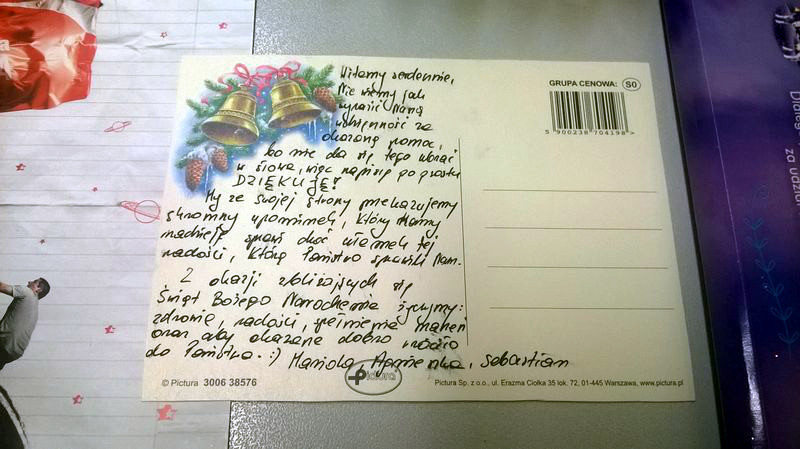 Witamy serdecznie,
Nie wiemy jak
wyrazić Naszą
wdzięczność za
okazaną pomoc,
bo nie da się tego ubrać
w słowa, więc napiszę po prostu
DZIĘKUJĘ!
My ze swojej strony przekazujemy
skromny upominek, który mamy
nadzieję sprawi choć ułamek tej
radości, którą Państwo sprawili Nam.
Z okazji zbliżających się
Świąt Bożego Narodzenia życzymy:
zdrowia, radości, spełnienia marzeń
oraz aby okazane dobro wróciło
do Państwa. :) Mariola, Agnieszka, Sebastian
GRUPA CENOWA: S0
5 900238 704198 >
© Pictura 3006 38576
Pictura
Pictura Sp. z o.o., ul. Erazma Ciołka 35 lok. 72, 01-445 Warszawa, www.pictura.pl
za udział